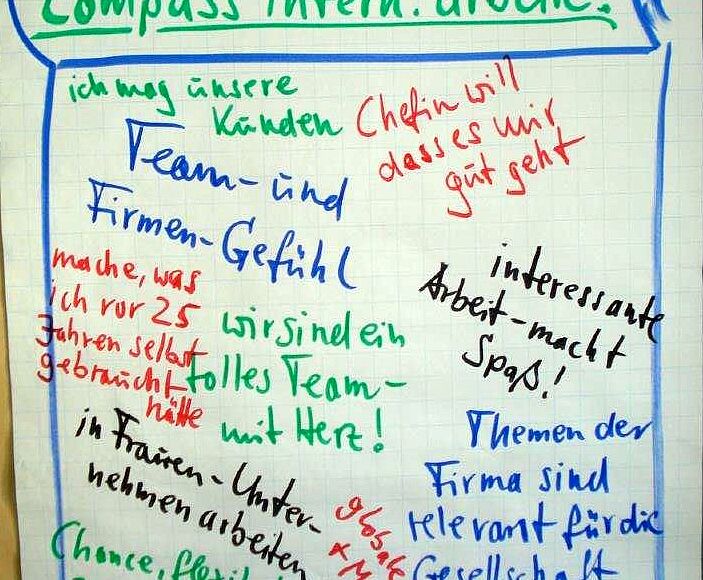 Compass intern.
ich mag unsere
Kunden
Chefin will
dass es mir
gut geht
Team- und
Firmen-Gefühl
mache, was
ich vor 25
Jahren selbst
gebraucht
hätte
interessante
Arbeit-macht
Spaß!
wir sind ein
tolles Team-
mit Herz!
in Frauen-Unter-
nehmen arbeiten
Themen der
Firma sind
relevant für die
Gesellschaft
Chance,